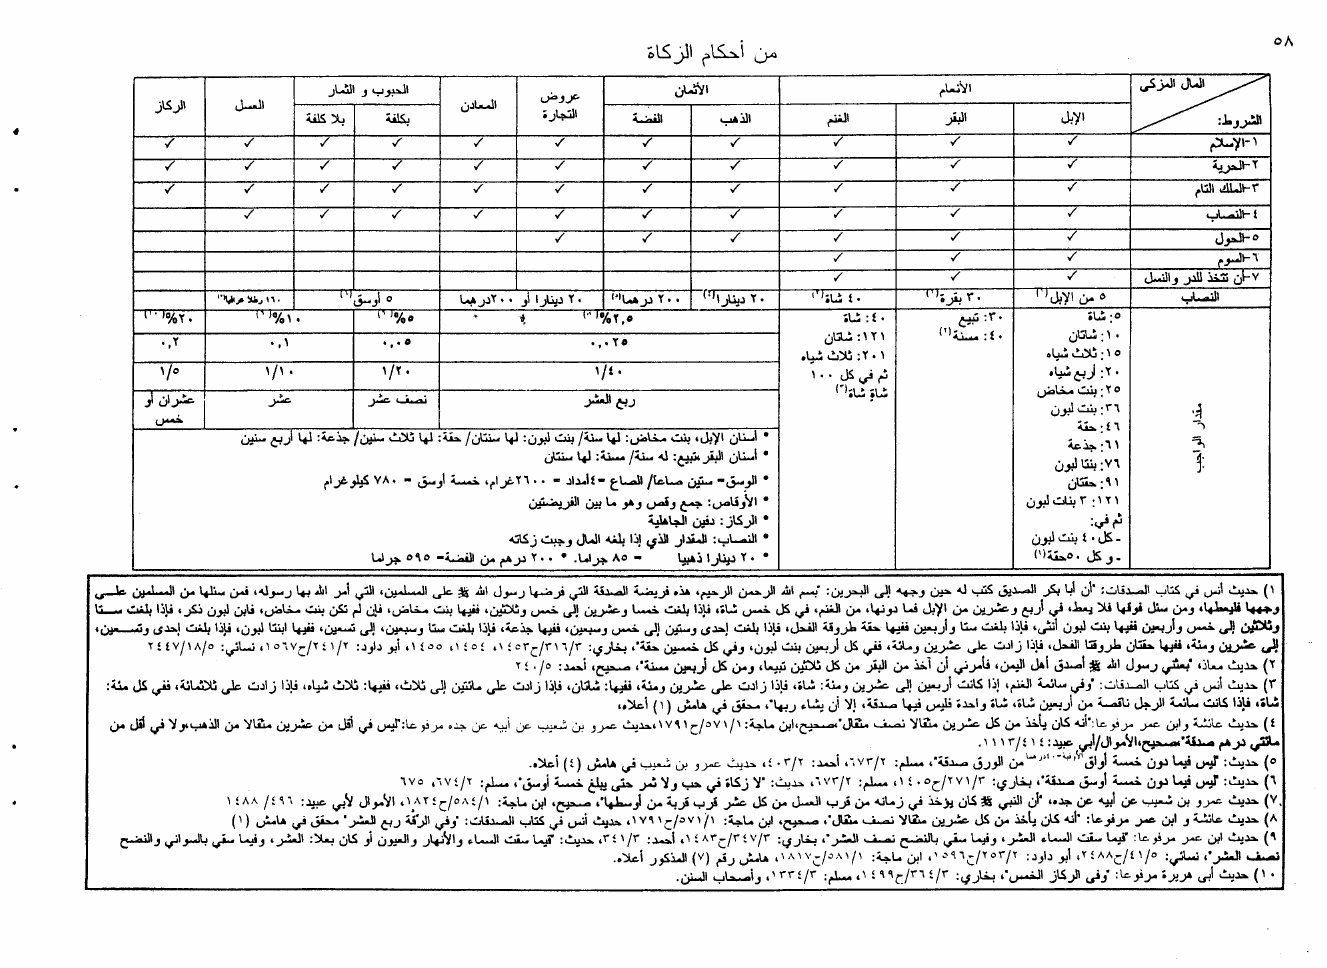 ٥٨
من أحكام الزكاة
المال المزكى
الشروط:
الأنعام
الأثمان
عروض التجارة
المعادن
الحبوب و الثمار
العسل
الركاز
الإبل
البقر
الغنم
الذهب
الفضة
بكلفة
بلا كلفة
١-الإسلام ✓ ✓ ✓ ✓ ✓ ✓ ✓ ✓ ✓ ✓ ✓
٢-الحرية ✓ ✓ ✓ ✓ ✓ ✓ ✓ ✓ ✓ ✓ ✓
٣-الملك التام ✓ ✓ ✓ ✓ ✓ ✓ ✓ ✓ ✓ ✓ ✓
٤-النصاب ✓ ✓ ✓ ✓ ✓ ✓ ✓ ✓ ✓ ✓
٥-الحول ✓ ✓ ✓ ✓ ✓ ✓
٦-السوم ✓ ✓ ✓
٧-أن تتخذ للدر والنسل ✓ ✓ ✓
النصاب
٥ من الإبل(١)
٣٠ بقرة(٢)
٤٠ شاة(٣)
٢٠ دينارا(٤)
٢٠٠ درهما(٥)
٢٠ دينارا أو ٢٠٠درهما
٥ أوسق(٦)
١٦٠ رطلا عراقيا(٧)
مقدار الواجب
٥: شاة
١٠: شاتان
١٥: ثلاث شياه
٢٠: أربع شياه
٢٥: بنت مخاض
٣٦: بنت لبون
٤٦: حقة
٦١: جذعة
٧٦: بنتا لبون
٩١: حقتان
١٢١: ٣ بنات لبون
ثم في:
- كل ٤٠ بنت لبون
- و كل ٥٠ حقة(١)
٣٠: تبيع
٤٠: مسنة(٢)
٤٠: شاة
١٢١: شاتان
٢٠١: ثلاث شياه
ثم في كل ١٠٠
شاةٍ شاة(٣)
٢,٥%(٨)
٥%(٩)
١٠%(٩)
٢٠%(١٠)
٠,٠٢٥
٠,٠٥
٠,١
٠,٢
١/٤٠
١/٢٠
١/١٠
١/٥
ربع العشر
نصف عشر
عشر
عشران أو خمس
• أسنان الإبل، بنت مخاض: لها سنة/ بنت لبون: لها سنتان/ حقة: لها ثلاث سنين/ جذعة: لها أربع سنين
• أسنان البقر،تبيع: له سنة/ مسنة: لها سنتان
• الوسق= ستين صاعا/ الصاع =٤أمداد = ٢٦٠٠غرام، خمسة أوسق = ٧٨٠ كيلوغرام
• الأوقاص: جمع وقص وهو ما بين الفريضتين
• الركاز: دفين الجاهلية
• النصاب: المقدار الذي إذا بلغه المال وجبت زكاته
• ٢٠ دينارا ذهبيا = ٨٥ جراما. • ٢٠٠ درهم من الفضة= ٥٩٥ جراما
١) حديث أنس في كتاب الصدقات: "أن أبا بكر الصديق كتب له حين وجهه إلى البحرين: "بسم الله الرحمن الرحيم، هذه فريضة الصدقة التي فرضها رسول الله ﷺ على المسلمين، التي أمر الله بها رسوله، فمن سئلها من المسلمين على
وجهها فليعطها، ومن سئل فوقها فلا يعط، في أربع وعشرين من الإبل فما دونها، من الغنم، في كل خمس شاة، فإذا بلغت خمسا وعشرين إلى خمس وثلاثين، ففيها بنت مخاض، فإن لم تكن بنت مخاض، فابن لبون ذكر، فإذا بلغت ستا
وثلاثين إلى خمس وأربعين ففيها بنت لبون أنثى، فإذا بلغت ستا وأربعين ففيها حقة طروقة الفحل، فإذا بلغت إحدى وستين إلى خمس وسبعين، ففيها جذعة، فإذا بلغت ستا وسبعين، إلى تسعين، ففيها ابنتا لبون، فإذا بلغت إحدى وتسعين،
إلى عشرين ومئة، ففيها حقتان طروقتا الفحل، فإذا زادت على عشرين ومائة، ففي كل أربعين بنت لبون، وفي كل خمسين حقة"، بخاري: ٣١٦/٣/ح١٤٥٣، ١٤٥٤، ١٤٥٥، أبو داود: ٢٤١/٢/ح١٥٦٧، نسائي: ٢٤٤٧/١٨/٥
٢) حديث معاذ، "بعثني رسول الله ﷺ أصدق أهل اليمن، فأمرني أن آخذ من البقر من كل ثلاثين تبيعا، ومن كل أربعين مسنة"، صحيح، أحمد: ٢٤٠/٥
٣) حديث أنس في كتاب الصدقات: "وفي سائمة الغنم، إذا كانت أربعين إلى عشرين ومئة: شاة، فإذا زادت على عشرين ومئة، ففيها: شاتان، فإذا زادت على مائتين إلى ثلاث، ففيها: ثلاث شياه، فإذا زادت على ثلاثمائة، ففي كل مئة:
شاة، فإذا كانت سائمة الرجل ناقصة من أربعين شاة، شاة واحدة فليس فيها صدقة، إلا أن يشاء ربها"، محقق في هامش (١) أعلاه،
٤) حديث عائشة وابن عمر مرفوعا:"أنه كان يأخذ من كل عشرين مثقالا نصف مثقال"،صحيح،ابن ماجة:٥٧١/١/ح١٧٩١،حديث عمرو بن شعيب عن أبيه عن جده مرفوعا:"ليس في أقل من عشرين مثقالا من الذهب،ولا في أقل من
مائتي درهم صدقة"،صحيح،الأموال/أبي عبيد:١١١٣/٤١٤.
٥) حديث: "ليس فيما دون خمسة أواق من الورق صدقة"، مسلم: ٦٧٣/٢، أحمد: ٤٠٣/٢، حديث عمرو بن شعيب في هامش (٤) أعلاه.
٦) حديث: "ليس فيما دون خمسة أوسق صدقة"، بخاري: ٢٧١/٣/ح١٤٠٥، مسلم: ٦٧٣/٢، حديث: "لا زكاة في حب ولا ثمر حتى يبلغ خمسة أوسق"، مسلم: ٦٧٤/٢، ٦٧٥
٧) حديث عمرو بن شعيب عن أبيه عن جده، "أن النبي ﷺ كان يؤخذ في زمانه من قرب العسل من كل عشر قرب قربة من أوسطها"، صحيح، ابن ماجة: ٥٨٤/١/ح١٨٢٤، الأموال لأبي عبيد: ٤٩٦/ ١٤٨٨
٨) حديث عائشة و ابن عمر مرفوعا: "أنه كان يأخذ من كل عشرين مثقالا نصف مثقال"، صحيح، ابن ماجة: ٥٧١/١/ح١٧٩١، حديث أنس في كتاب الصدقات: "وفي الرقة ربع العشر" محقق في هامش (١)
٩) حديث ابن عمر مرفوعا: "فيما سقت السماء العشر، وفيما سقي بالنضح نصف العشر"، بخاري: ٣٤٧/٣/ح١٤٨٣، أحمد: ٣٤١/٣، حديث: "فيما سقت السماء والأنهار والعيون أو كان بعلا: العشر، وفيما سقي بالسواني والنضح
نصف العشر"، نسائي: ٤١/٥/ح٢٤٨٨، أبو داود: ٢٥٣/٢/ح١٥٩٦، ابن ماجة: ٥٨١/١/ح١٨١٧، هامش رقم (٧) المذكور أعلاه.
١٠) حديث أبي هريرة مرفوعا: "وفي الركاز الخمس"، بخاري: ٣٦٤/٣/ح١٤٩٩، مسلم: ١٣٣٤/٣، وأصحاب السنن.